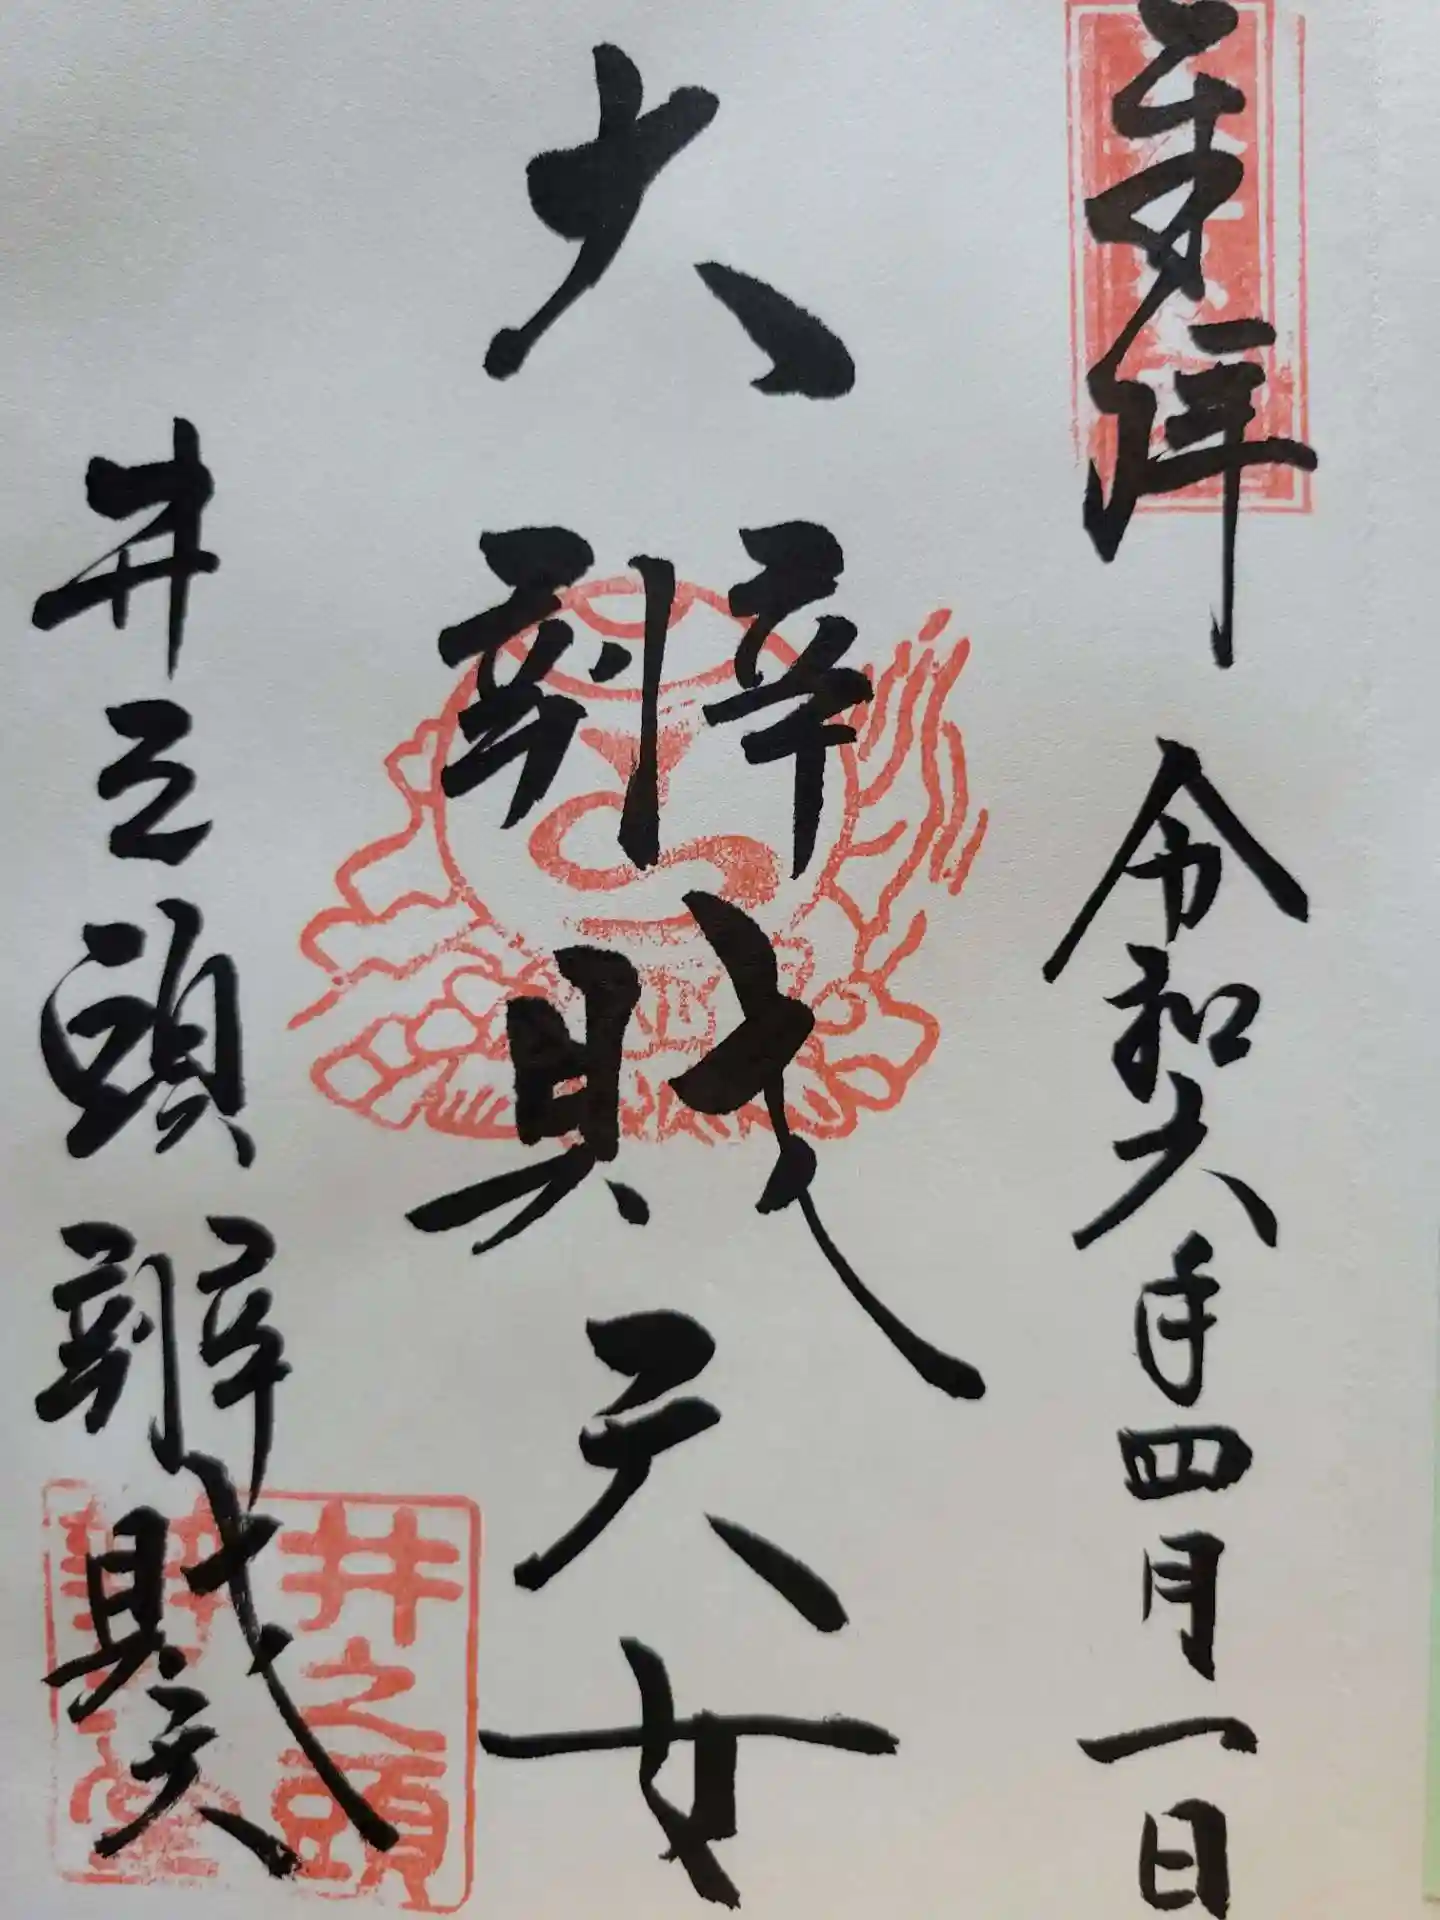 奉拝
令和六年四月一日
大辨財天女
井之頭辨財天
井之頭